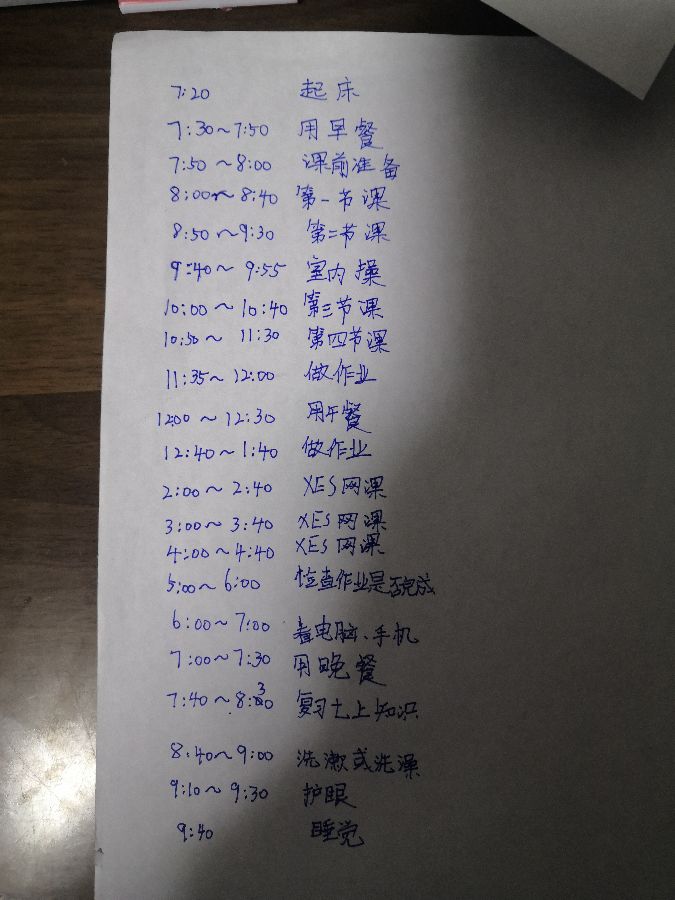 7:20 起床
7:30～7:50 用早餐
7:50～8:00 课前准备
8:00～8:40 第一节课
8:50～9:30 第二节课
9:40～9:55 室内操
10:00～10:40 第三节课
10:50～11:30 第四节课
11:35～12:00 做作业
12:00～12:30 用午餐
12:40～1:40 做作业
2:00～2:40 XES网课
3:00～3:40 XES网课
4:00～4:40 XES网课
5:00～6:00 检查作业是否完成
6:00～7:00 看电脑、手机
7:00～7:30 用晚餐
7:40～8:30 复习七上知识
8:40～9:00 洗漱或洗澡
9:10～9:30 护眼
9:40 睡觉